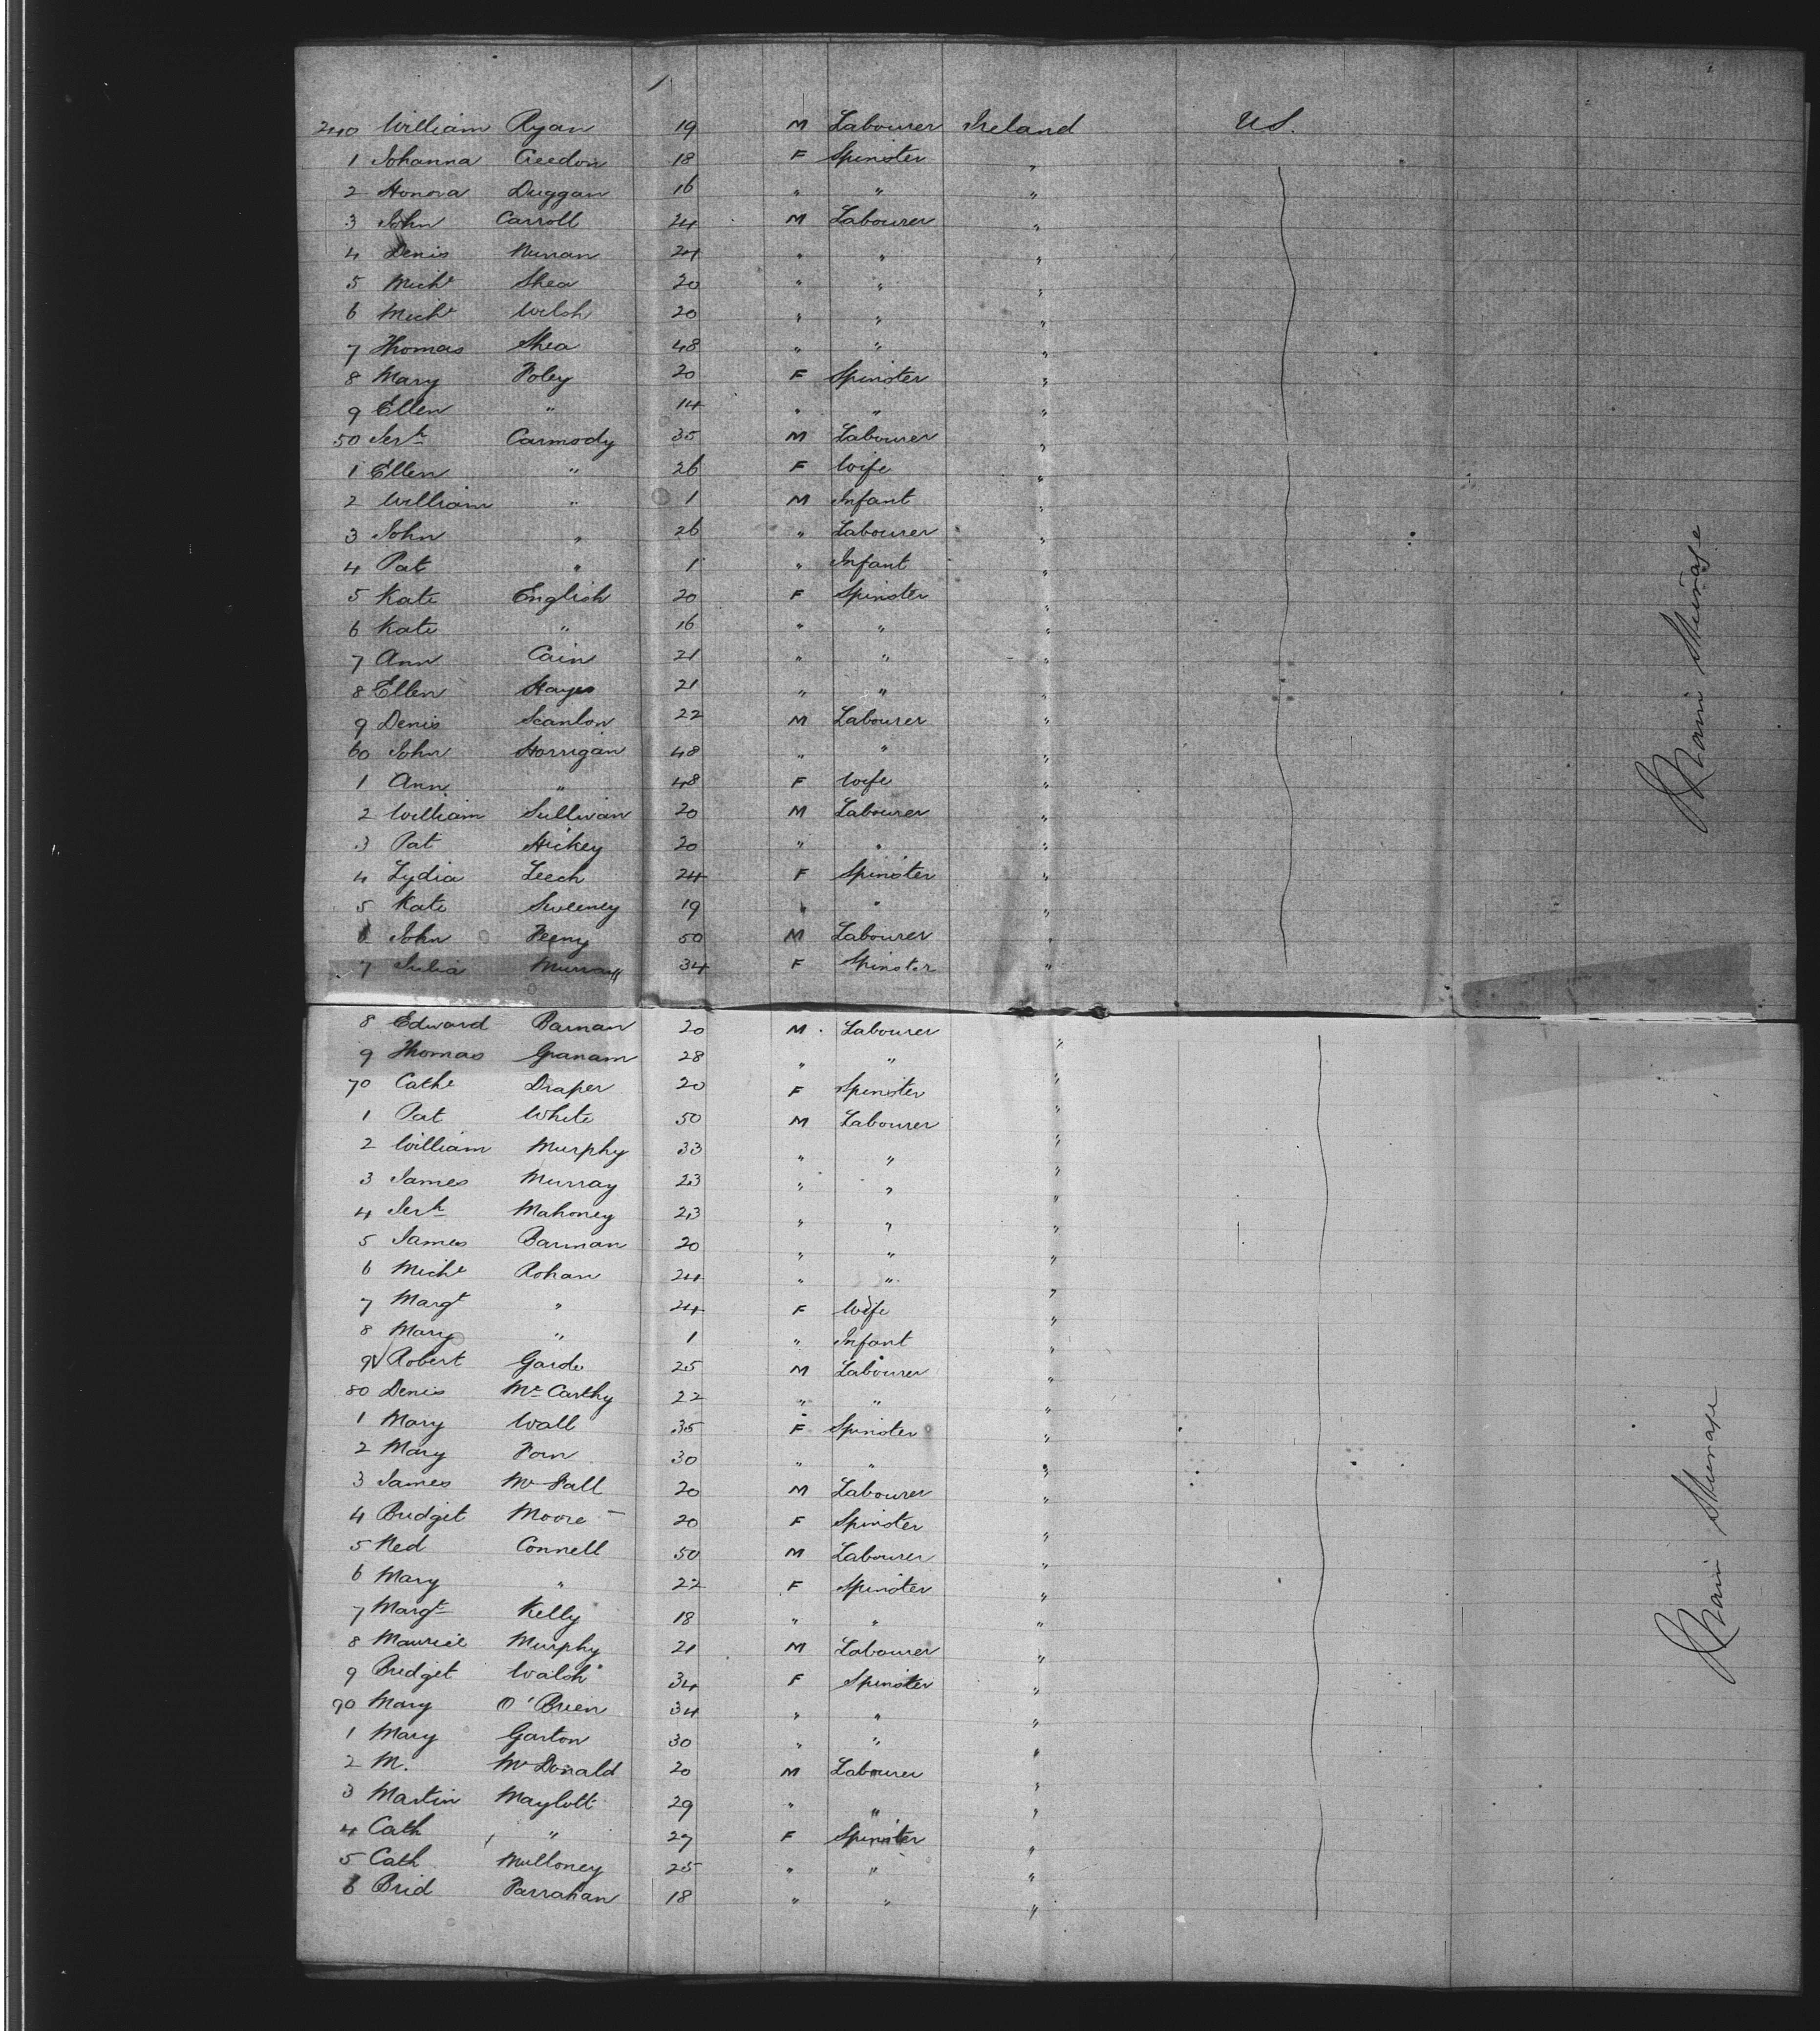 240 William Ryan 19 M Labourer Ireland U.S.
1 Johanna Creedon 18 F Spinster "
2 Honora Duggan 16 " " "
3 John Carroll 24 M Labourer "
4 Denis 24 " " "
5 Michl Shea 20 " " "
6 Michl Welsh 20 " " "
7 Thomas Shea 48 " " "
8 Mary Foley 20 F Spinster "
9 Ellen " 14 " " "
50 Jerh Carmody 35 M Labourer "
1 Ellen " 26 F Wife "
2 William " 1 M Infant "
3 John " 26 " Labourer "
4 Pat " 1 " Infant "
5 Kate English 20 F Spinster "
6 Kate " 16 " " "
7 Ann Cain 21 " " "
8 Ellen Hayes 21 " " "
9 Denis Scanlon 22 M Labourer "
60 John Horrigan 48 " " "
1 Ann " 48 F Wife "
2 William Sullivan 20 M Labourer "
3 Pat Hickey 20 " " "
4 Lydia Leech 24 F Spinster "
5 Kate Sweeney 19 " " "
6 John Feeny 50 M Labourer "
7 Julia Murray 34 F Spinster "
8 Edward Barnan 20 M Labourer "
9 Thomas Granam 28 " " "
70 Cathe Draper 20 F Spinster "
1 Pat White 50 M Labourer "
2 William Murphy 33 " " "
3 James Murray 23 " " "
4 Jerh Mahoney 23 " " "
5 James Barman 20 " " "
6 Michl Rohan 24 " " "
7 Margt " 24 F Wife "
8 Mary " 1 " Infant "
9 Robert Garde 25 M Labourer "
80 Denis McCarthy 22 " " "
1 Mary Wall 35 F Spinster "
2 Mary 30 " " "
3 James McFall 20 M Labourer "
4 Bridget Moore 20 F Spinster "
5 Ned Connell 50 M Labourer "
6 Mary " 22 F Spinster "
7 Margt Kelly 18 " " "
8 Maurice Murphy 21 M Labourer "
9 Bridget Walsh 34 F Spinster "
90 Mary O'Brien 34 " " "
1 Mary Garton 30 " " "
2 M. McDonald 20 M Labourer "
3 Martin Maylott 29 " " "
4 Cath " 27 F Spinster "
5 Cath Mulloney 25 " " "
6 Brid Farrahan 18 " " "
Main Steerage
Main Steerage